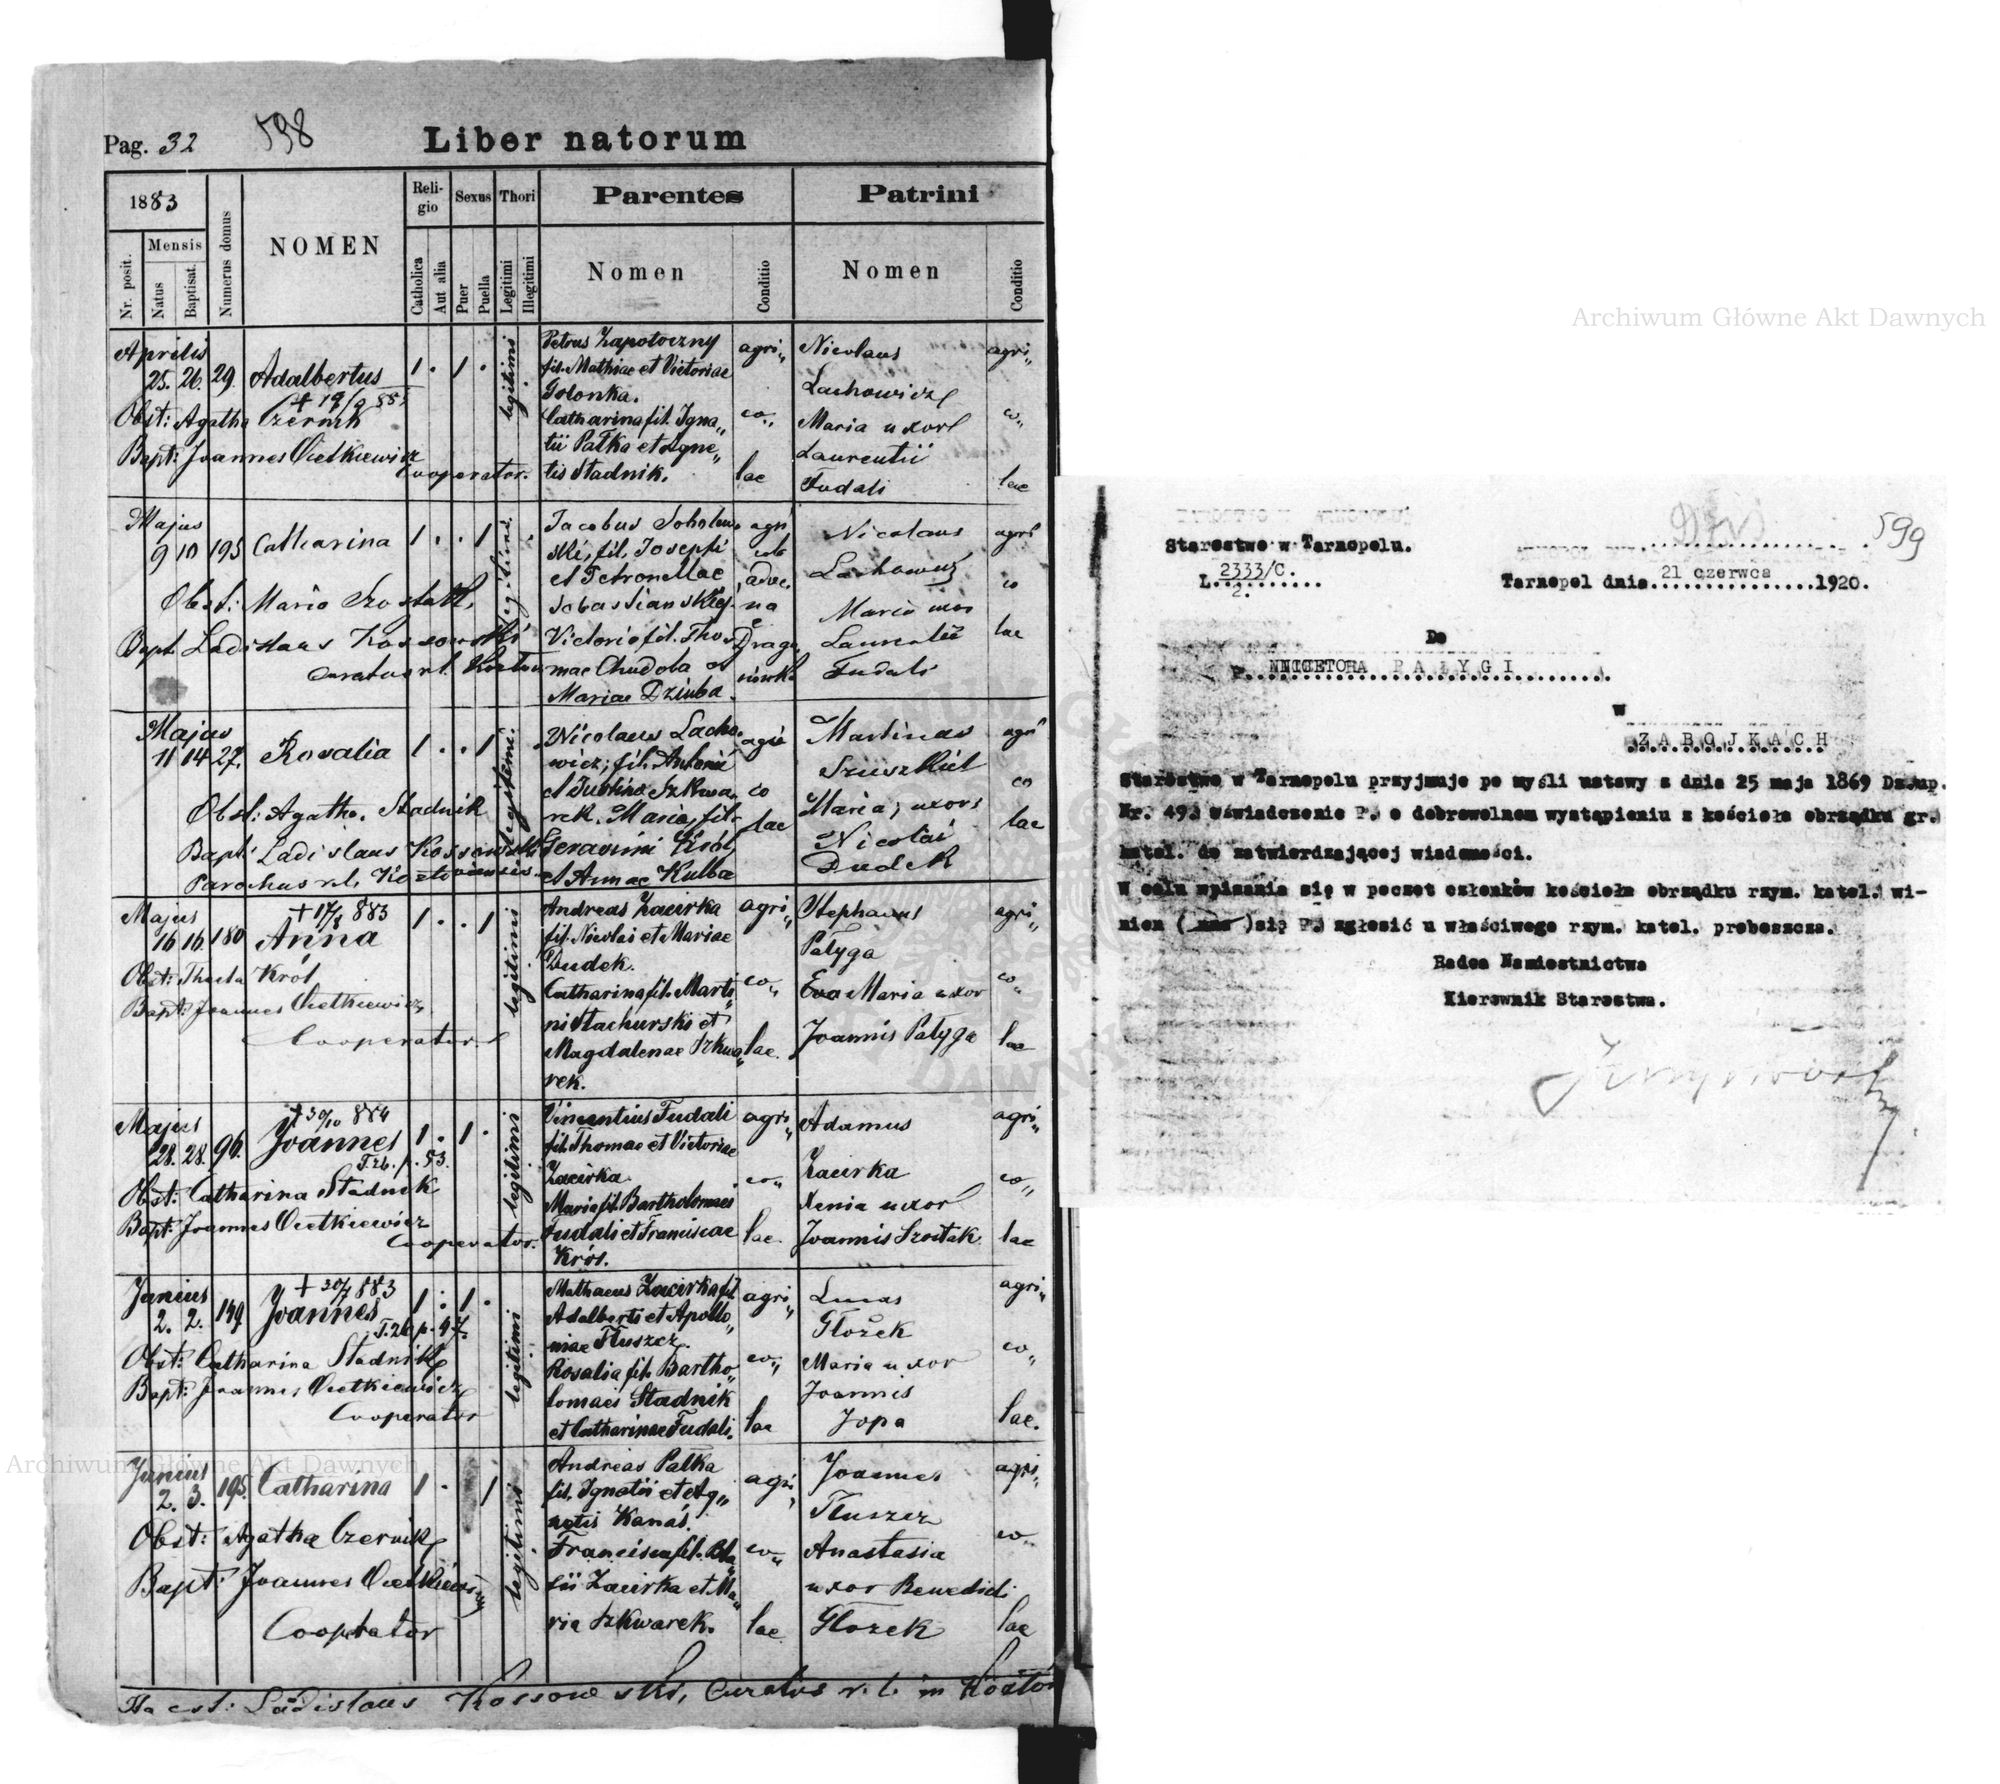 Pag. 32
598
Liber natorum
1883
Nr. posit.
Mensis
Natus
Baptisat.
Numerus domus
NOMEN
Religio
Catholica
Aut alia
Sexus
Puer
Puella
Thori
Legitimi
Illegitimi
Parentes
Nomen
Conditio
Patrini
Nomen
Conditio
Aprilis
25. 26. 29. Adalbertus 1 . 1 .
Obst: Agatha Czernik
Bapt: Joannes Cietkiewicz
Cooperator.
legitimi
Petrus Zapotoczny
fil. Mathiae et Victoriae
Golonka.
Catharina fil. Igna„
tii Pałka et Agne„
tis Stadnik.
agri„
co„
lae
Nicolaus
Lachowicz
Maria uxor
Laurentii
Fudali
agri„
co„
lae
Majus
9 10 195 Catharina 1 . . 1
Obst: Maria Szostak
Bapt. Ladislaus Kossowski
Curatus r.l.
Jacobus
ski, fil. Josephi
et Petronellae
Victoria fil. Tho
mae Chudoba et
Mariae Dziuba.
Nicolaus
Lachowicz
Maria uxor
Laurentii
Fudali
agri
co
lae
Majus
11 14 27. Rosalia 1 . . 1
Obst: Agatha Stadnik
Bapt: Ladislaus Kossowski
Parochus r.l.
Nicolaus Lacho
wicz, fil. Antonii
et Justina Szkwa
rek. Maria, fil.
Seraphini Król
et Annae Kulba
agri
co
lae
Martinus
Maria, uxor
Nicolai
Dudek
agri
co
lae
Majus
16 16. 180 Anna 1 . . 1
+ 17/8 883
Obst: Thecla Król
Bapt: Joannes Cietkiewicz
Cooperator
legitimi
Andreas Zacirka
fil. Nicolai et Mariae
Dudek.
Catharina fil. Marti
ni Stachurski et
Magdalenae Szkwa„
rek.
agri„
co„
lae.
Stephanus
Patyga
Eva Maria uxor
Joannis Patyga
agri„
co„
lae
Majus
28. 28. 96. Joannes 1 . 1 .
+ 30/10 884
Obst: Catharina Stadnik
Bapt: Joannes Cietkiewicz
Cooperator.
legitimi
Vincentius Fudali
fil. Thomae et Victoriae
Zacirka.
Maria fil. Bartholomaei
Fudali et Franciscae
Król.
agri„
co„
lae.
Adamus
Zacirka
Xenia uxor
Joannis Szostak
agri„
co„
lae
Junius
2. 2. 149 Joannes 1 . 1 .
+ 30/7 883
Obst: Catharina Stadnik
Bapt: Joannes Cietkiewicz
Cooperator
legitimi
Mathaeus Zacirka fil.
Adalberti et Apollo„
niae Tłuszcz.
Rosalia fil. Bartho„
lomaei Stadnik
et Catharinae Fudali.
agri„
co„
lae
Lucas
Głożek
Maria uxor
Joannis
Jopa
agri„
co„
lae.
Junius
2. 3. 195. Catharina 1 . 1
Obst: Agatha Czernik
Bapt: Joannes Cietkiewicz
Cooperator
legitimi
Andreas Pałka
fil. Ignatii et Ag„
netis Kanas.
Francisca fil. Bla„
sii Zacirka et Ma„
ria Szkwarek.
agri„
co„
lae
Joannes
Tłuszcz
Anastasia
uxor Benedicti
Głozek
agri„
co„
lae
Ita est: Ladislaus Kossowski, Curatus r.l. in
Archiwum Główne Akt Dawnych
599
Starostwo w Tarnopolu.
L. 2333/C.
2.
Tarnopol dnia 21 czerwca 1920.
Do
P. NICETORA PAŁYGI
w
ZABOJKACH
Starostwo w Tarnopolu przyjmuje po myśli ustawy z dnia 25 maja 1869 Dz.u.p.
Nr. 49. oświadczenie P. o dobrowolnem wystąpieniu z kościoła obrządku gr.
katol. do zatwierdzającej wiadomości.
W celu wpisania się w poczet członków kościoła obrządku rzym. katol. wi-
nien ( ) się P. zgłosić u właściwego rzym. katol. proboszcza.
Radca Namiestnictwa
Kierownik Starostwa.
Archiwum Główne Akt Dawnych